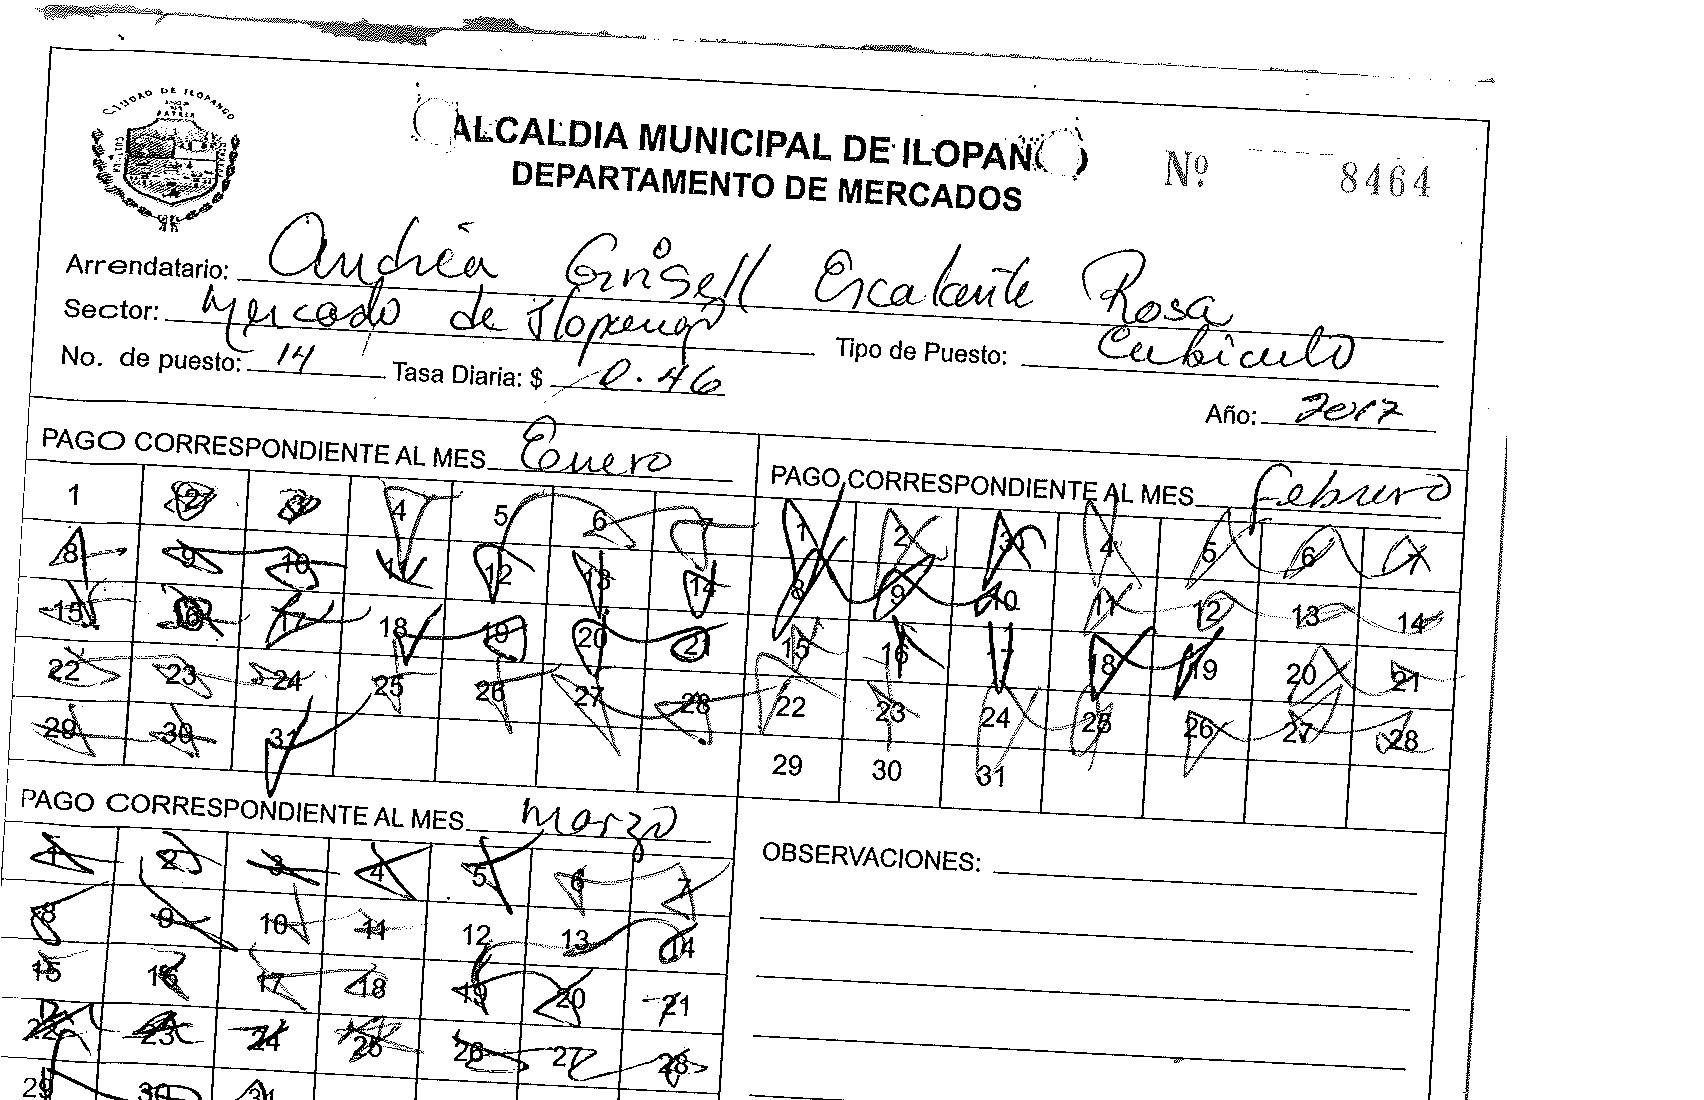 CIUDAD DE ILOPANGO
ALCALDIA MUNICIPAL DE ILOPAN
DEPARTAMENTO DE MERCADOS
Nº 8464
Arrendatario: Andréa Grisell Escalante Rosa
Sector: Mercado de Ilopango
Tipo de Puesto: Cubiculo
No. de puesto: 14 Tasa Diaria: $ 0.46
Año: 2017
PAGO CORRESPONDIENTE AL MES Enero
1 2 3 4 5 6 7
8 9 10 11 12 13 14
15 16 17 18 19 20 21
22 23 24 25 26 27 28
29 30 31
PAGO CORRESPONDIENTE AL MES Febrero
1 2 3 4 5 6 7
8 9 10 11 12 13 14
15 16 17 18 19 20 21
22 23 24 25 26 27 28
29 30 31
PAGO CORRESPONDIENTE AL MES Marzo
1 2 3 4 5 6 7
8 9 10 11 12 13 14
15 16 17 18 19 20 21
22 23 24 25 26 27 28
29 30 31
OBSERVACIONES: